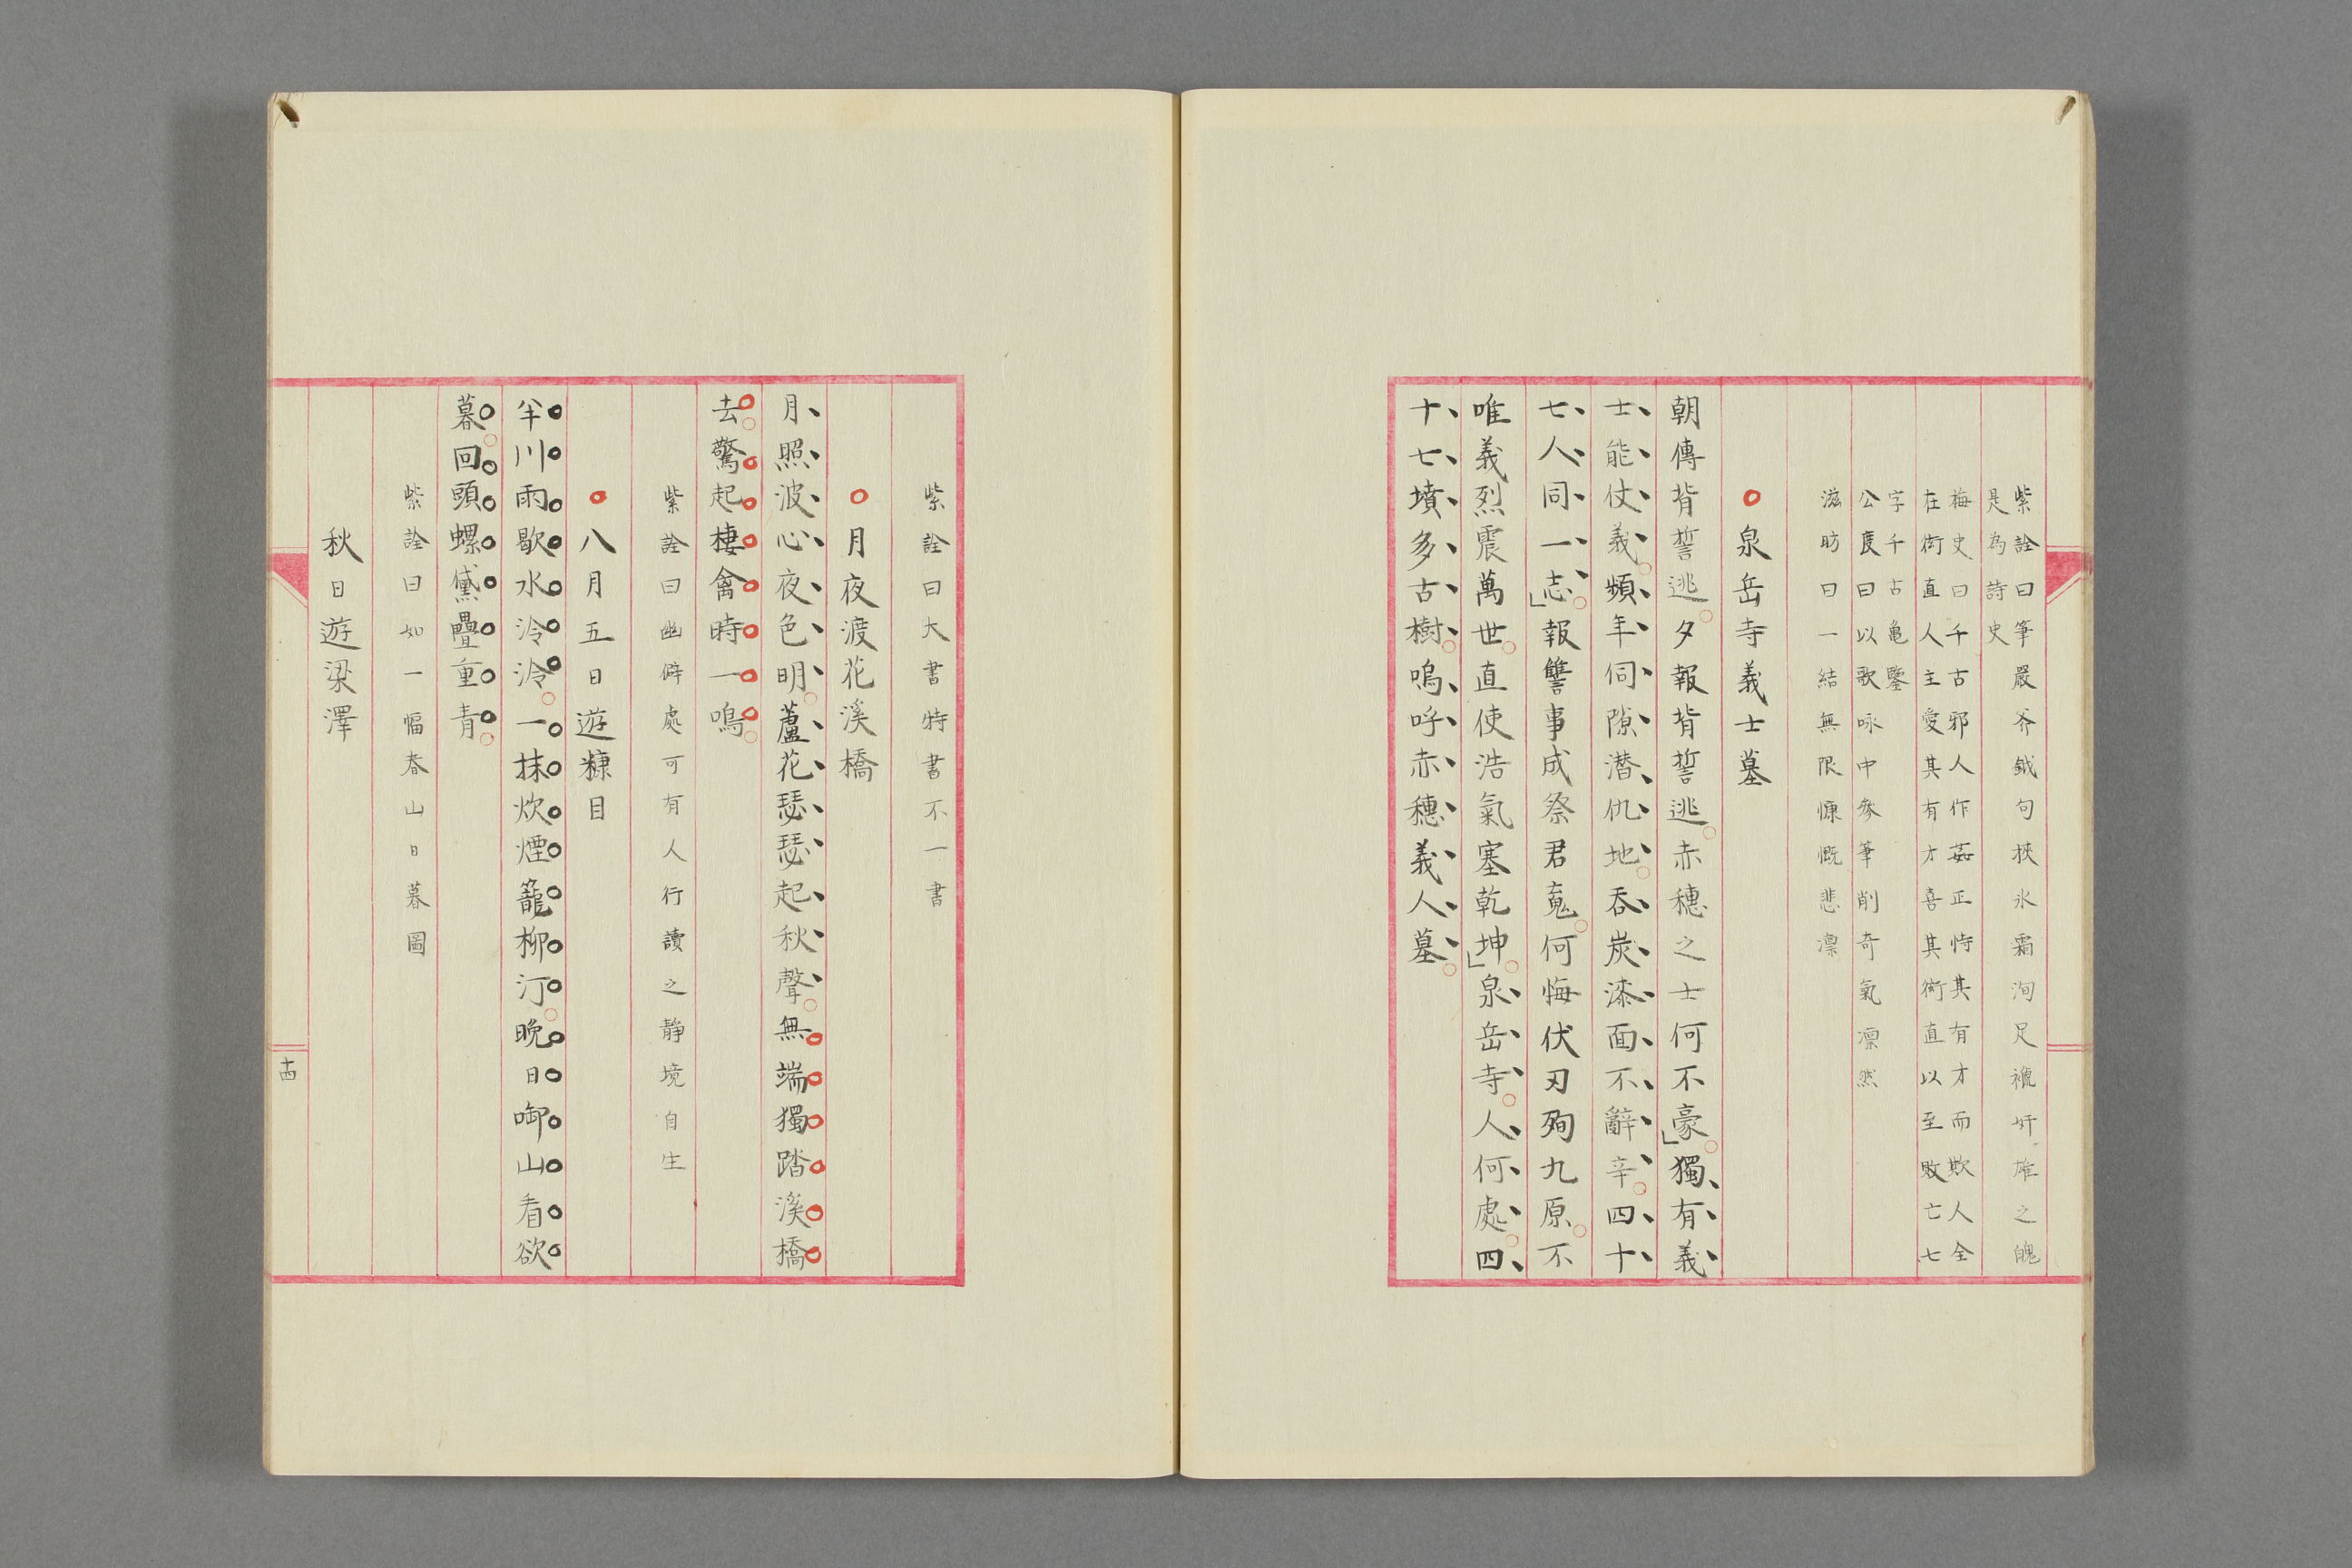 紫詮曰筆嚴斧鉞句挾氷霜洵足褫奸雄之魄
是為詩史
梅史曰千古邪人作姦正恃其有才而欺人全
在術直人主愛其有才喜其術直以至敗亡七
字千古亀鑒
公度曰以歌咏中參筆削奇氣凛然
滋昉曰一結無限慷慨悲凛
泉岳寺義士墓
朝傳背誓逃夕報背誓逃赤穗之士何不豪獨有義
士能仗義頻年伺隙潜仇地呑炭漆面不辭辛四十
七人同一志報讐事成祭君䰟何悔伏刃殉九原不
唯義烈震萬世直使浩氣塞乾坤泉岳寺人何處四
十七墳多古樹嗚呼赤穗義人墓
紫詮曰大書特書不一書
月夜渡花溪橋
月照波心夜色明蘆花瑟瑟起秋聲無端獨踏溪橋
去驚起棲禽時一鳴
紫詮曰幽僻處可有人行讀之静境自生
八月五日遊糠目
半川雨歇水泠泠一抹炊煙籠柳汀晩日啣山看欲
暮回頭螺黛疊重青
紫詮曰如一幅春山日暮圖
秋日遊梁澤
十四